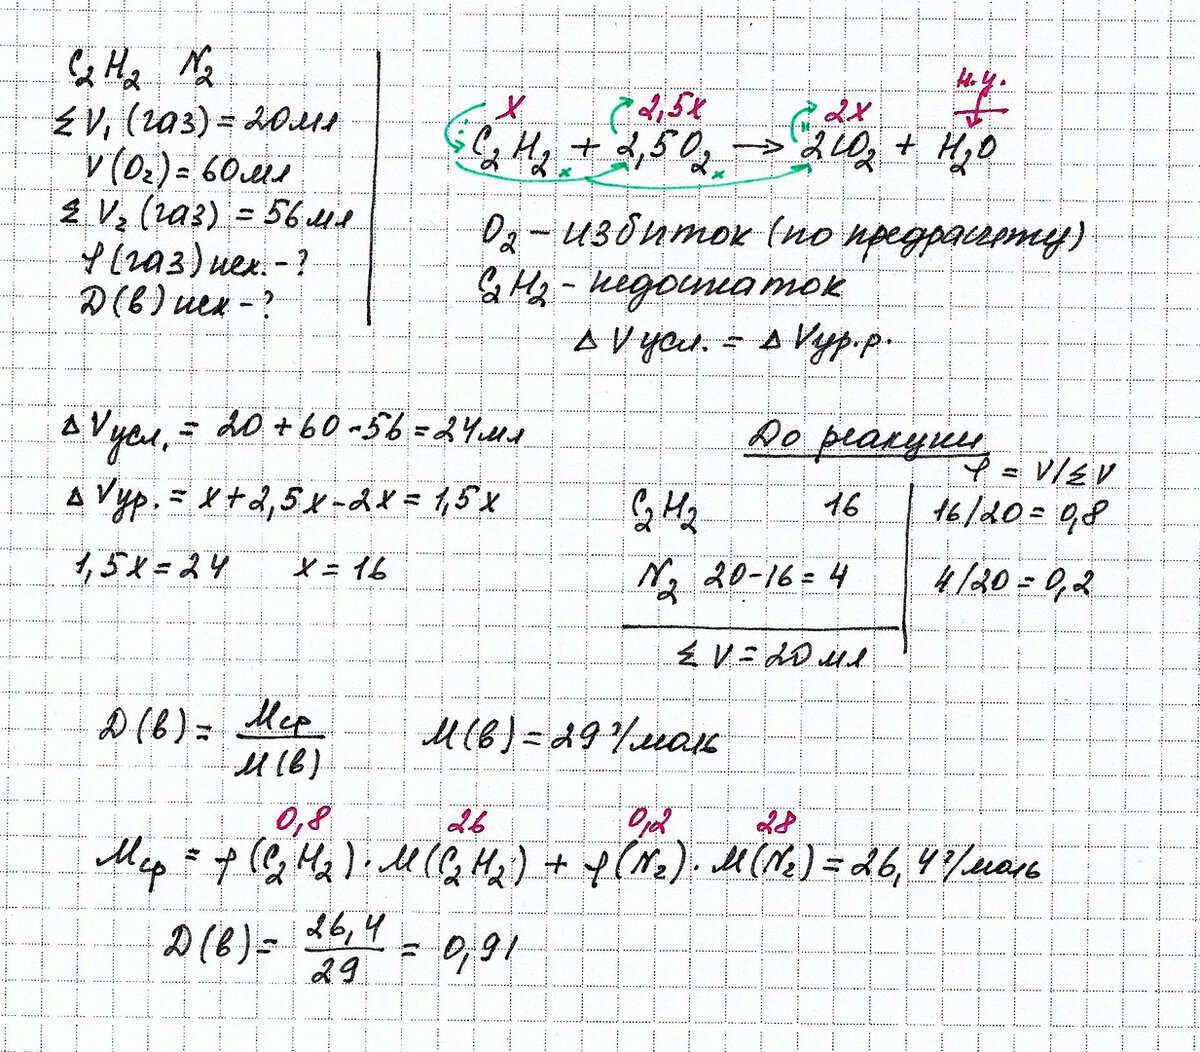 C₂H₂ N₂
Σ V₁ (газ) = 20 мл
V(O₂) = 60 мл
Σ V₂ (газ) = 56 мл
φ(газ) исх. - ?
D(в) исх - ?
x 2,5x 2x н.у.
C₂H₂ + 2,5O₂ → 2CO₂ + H₂O
x x
O₂ – избыток (по предрасчету)
C₂H₂ – недостаток
Δ V усл. = Δ V ур.р.
Δ V усл. = 20 + 60 - 56 = 24 мл
Δ V ур. = x + 2,5x - 2x = 1,5x
1,5x = 24 x = 16
До реакции
φ = V/ΣV
C₂H₂ 16 16/20 = 0,8
N₂ 20 - 16 = 4 4/20 = 0,2
Σ V = 20 мл
D(в) = Mср / M(в) M(в) = 29 г/моль
0,8 26 0,2 28
Mср = φ(C₂H₂) · M(C₂H₂) + φ(N₂) · M(N₂) = 26,4 г/моль
D(в) = 26,4 / 29 = 0,91